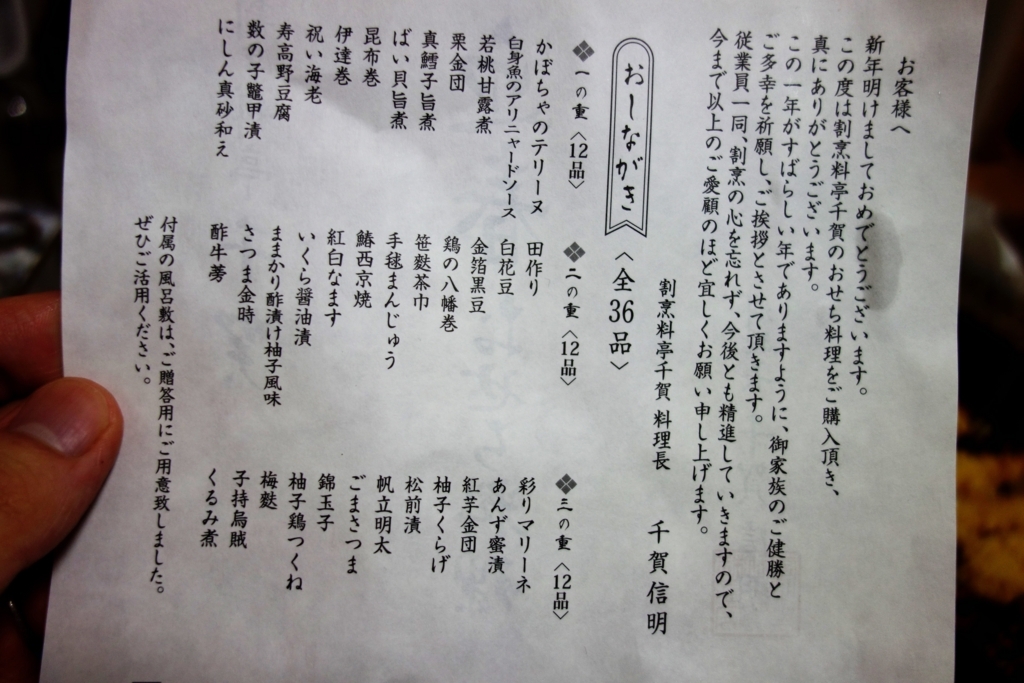 お客様へ
新年明けましておめでとうございます。
この度は割烹料亭千賀のおせち料理をご購入頂き、
真にありがとうございます。
この一年がすばらしい年でありますように、御家族のご健勝と
ご多幸を祈願し、ご挨拶とさせて頂きます。
従業員一同、割烹の心を忘れず、今後とも精進していきますので、
今まで以上のご愛顧のほど宜しくお願い申し上げます。
割烹料亭千賀 料理長 千賀信明
おしながき 〈全36品〉
❖一の重〈12品〉
かぼちゃのテリーヌ
白身魚のアリニャードソース
若桃甘露煮
栗金団
真鱈子旨煮
ばい貝旨煮
昆布巻
伊達巻
祝い海老
寿高野豆腐
数の子鼈甲漬
にしん真砂和え
❖二の重〈12品〉
田作り
白花豆
金箔黒豆
鶏の八幡巻
笹麩茶巾
手毬まんじゅう
鰆西京焼
紅白なます
いくら醤油漬
ままかり酢漬け柚子風味
さつま金時
酢牛蒡
❖三の重〈12品〉
彩りマリーネ
あんず蜜漬
紅芋金団
柚子くらげ
松前漬
帆立明太
ごまさつま
錦玉子
柚子鶏つくね
梅麩
子持烏賊
くるみ煮
付属の風呂敷は、ご贈答用にご用意致しました。
ぜひご活用ください。